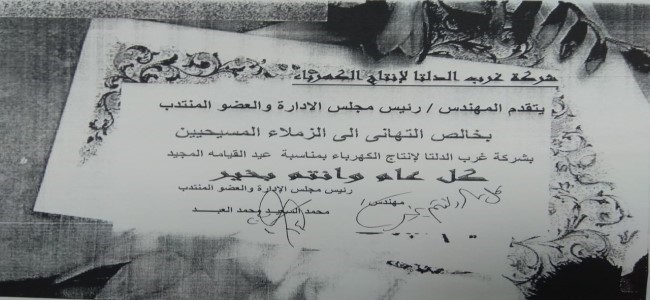 شركة غرب الدلتا لإنتاج الكهرباء
يتقدم المهندس / رئيس مجلس الادارة والعضو المنتدب
بخالص التهانى الى الزملاء المسيحيين
بشركة غرب الدلتا لإنتاج الكهرباء بمناسبة عيد القيامه المجيد
كل عام وانتم بخير
رئيس مجلس الإدارة والعضو المنتدب
مهندس /
محمد السعيد محمد العبد
كل سنة وانتم بخير